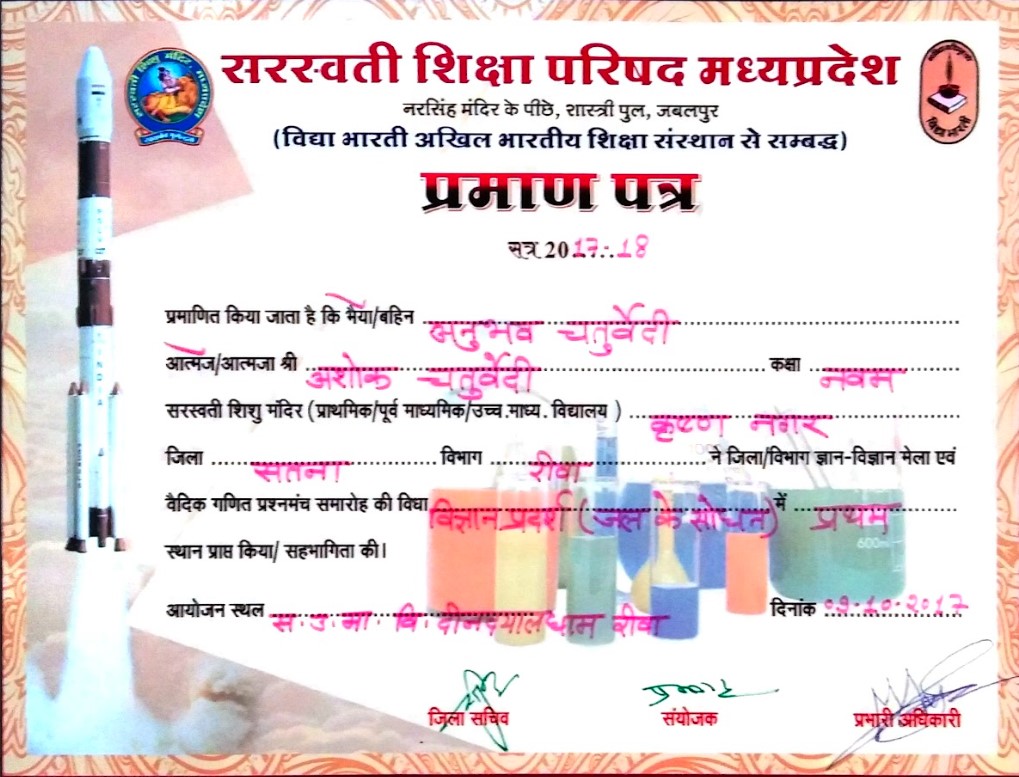 सरस्वती शिक्षा परिषद मध्यप्रदेश
नरसिंह मंदिर के पीछे, शास्त्री पुल, जबलपुर
(विद्या भारती अखिल भारतीय शिक्षा संस्थान से सम्बद्ध)
प्रमाण पत्र
सत्र 2017-18
प्रमाणित किया जाता है कि भैया/बहिन अनुभव चतुर्वेदी
आत्मज/आत्मजा श्री अशोक चतुर्वेदी कक्षा नवम
सरस्वती शिशु मंदिर (प्राथमिक/पूर्व माध्यमिक/उच्च.माध्य. विद्यालय ) कृष्ण नगर
जिला सतना विभाग रीवा ने जिला/विभाग ज्ञान-विज्ञान मेला एवं
वैदिक गणित प्रश्नमंच समारोह की विधा विज्ञान प्रदर्श (जल के सोधन) में प्रथम
स्थान प्राप्त किया/ सहभागिता की।
आयोजन स्थल स. उ. मा. वि. दीनदयालधाम रीवा दिनांक 09-10-2017
जिला सचिव संयोजक प्रभारी अधिकारी
विद्या भारती
INDIA
600ml